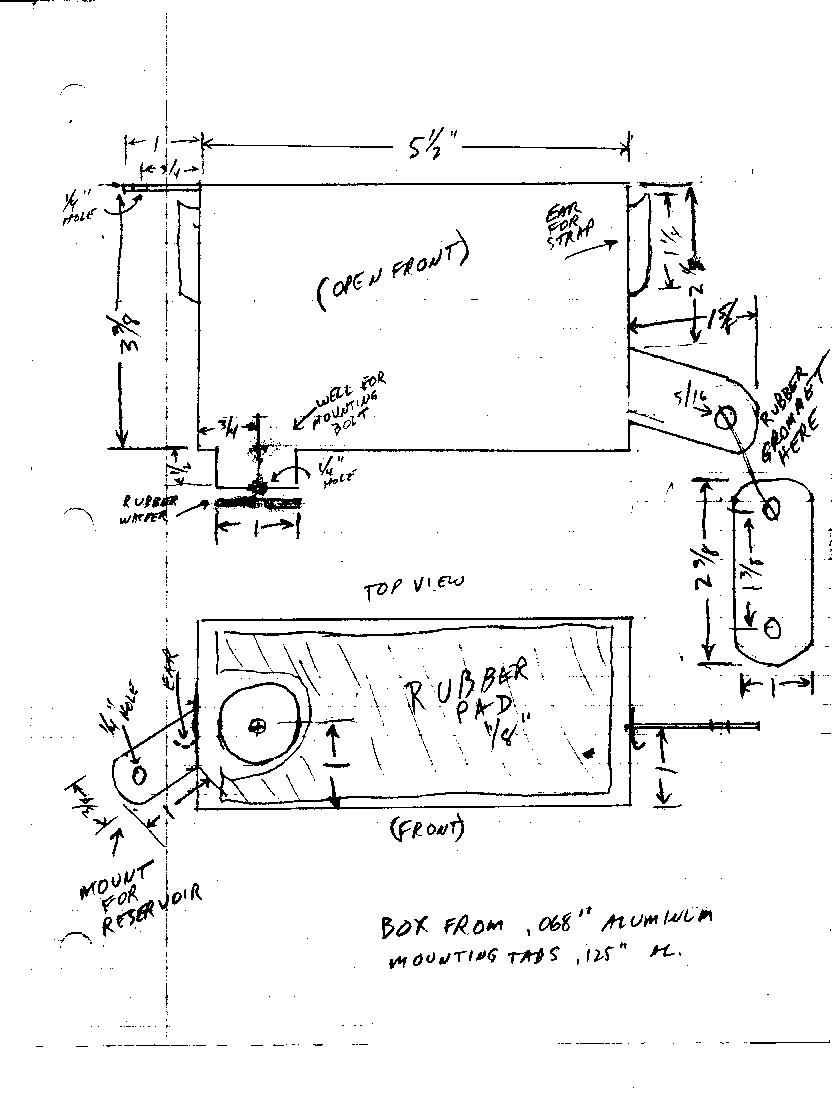 1
5 1/2"
3/4
1/4"
HOLE
EAR
FOR
STRAP
1 1/4
(OPEN FRONT)
3 3/8
5/16
RUBBER
GROMMET
HERE
WELL FOR
MOUNTING
BOLT
3/4
1/2
1/4"
HOLE
RUBBER
WAFER
1
2 3/8
1 3/8
1
TOP VIEW
EAR
1/4" HOLE
RUBBER
PAD
1/8"
1
1
3/4
1
(FRONT)
MOUNT
FOR
RESERVOIR
BOX FROM .068" ALUMINUM
MOUNTING TABS .125" AL.